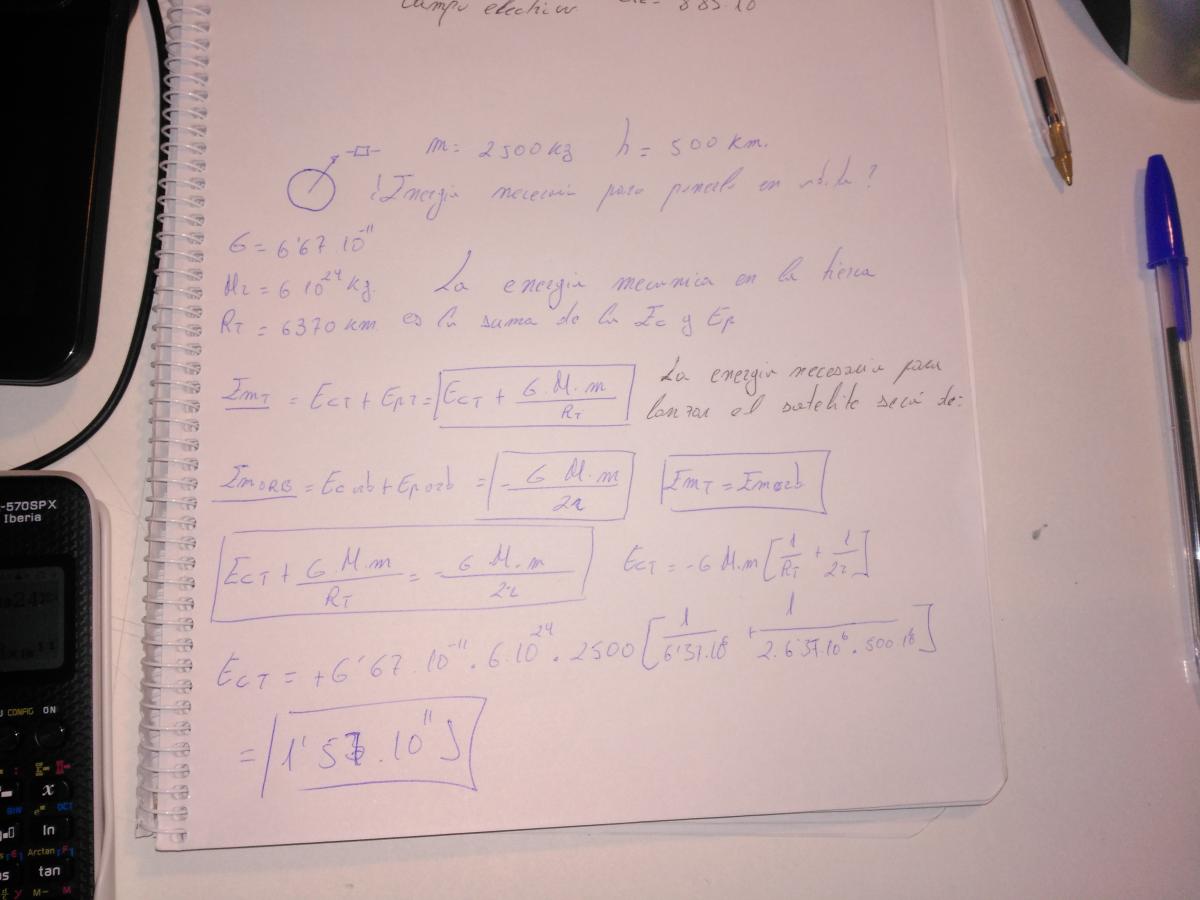 Campo electrico
m = 2500 kg h = 500 km.
¿Energia necesaria para ponerlo en orbita?
G = 6'67 · 10^-11
MT = 6 10^24 kg. La energia mecanica en la tierra
RT = 6370 km. es la suma de la Ec y Ep
EmT = EcT + EpT = EcT + G · M · m / RT
La energia necesaria para
lanzar el satelite será de:
EmORB = Ecorb + Eporb = - G M · m / 2r EmT = Emorb
EcT + G · M · m / RT = - G M · m / 2r EcT = -G M · m [1/RT + 1/2r]
EcT = +6'67 · 10^-11 · 6 · 10^24 · 2500 [1 / 6'37·10^6 + 1 / 2·6'37·10^6 · 500·10^6]
= 10^11 J
-570SPX
Iberia
CONFIG ON
x
ln
Arctan
tan
M- M